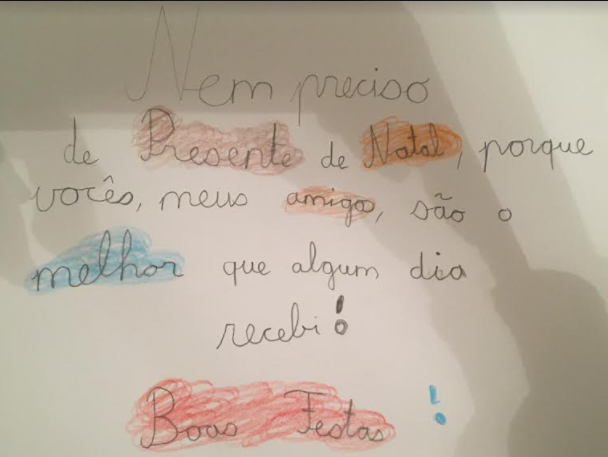 Nem preciso
de Presente de Natal, porque
vocês, meus amigos, são o
melhor que algum dia
recebi!
Boas Festas!